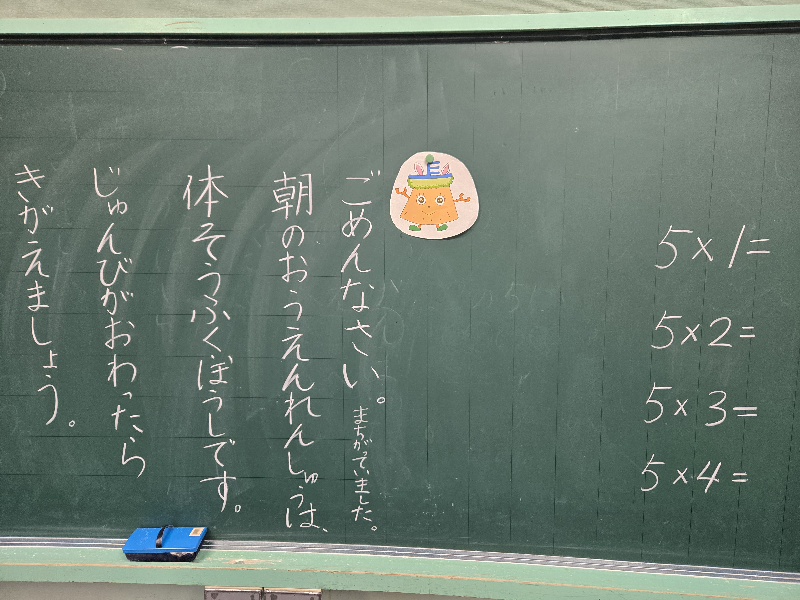 5×1=
5×2=
5×3=
5×4=
ごめんなさい。まちがっていました。
朝のおうえんれんしゅうは、
体そうふくぼうしです。
じゅんびがおわったら
きがえましょう。